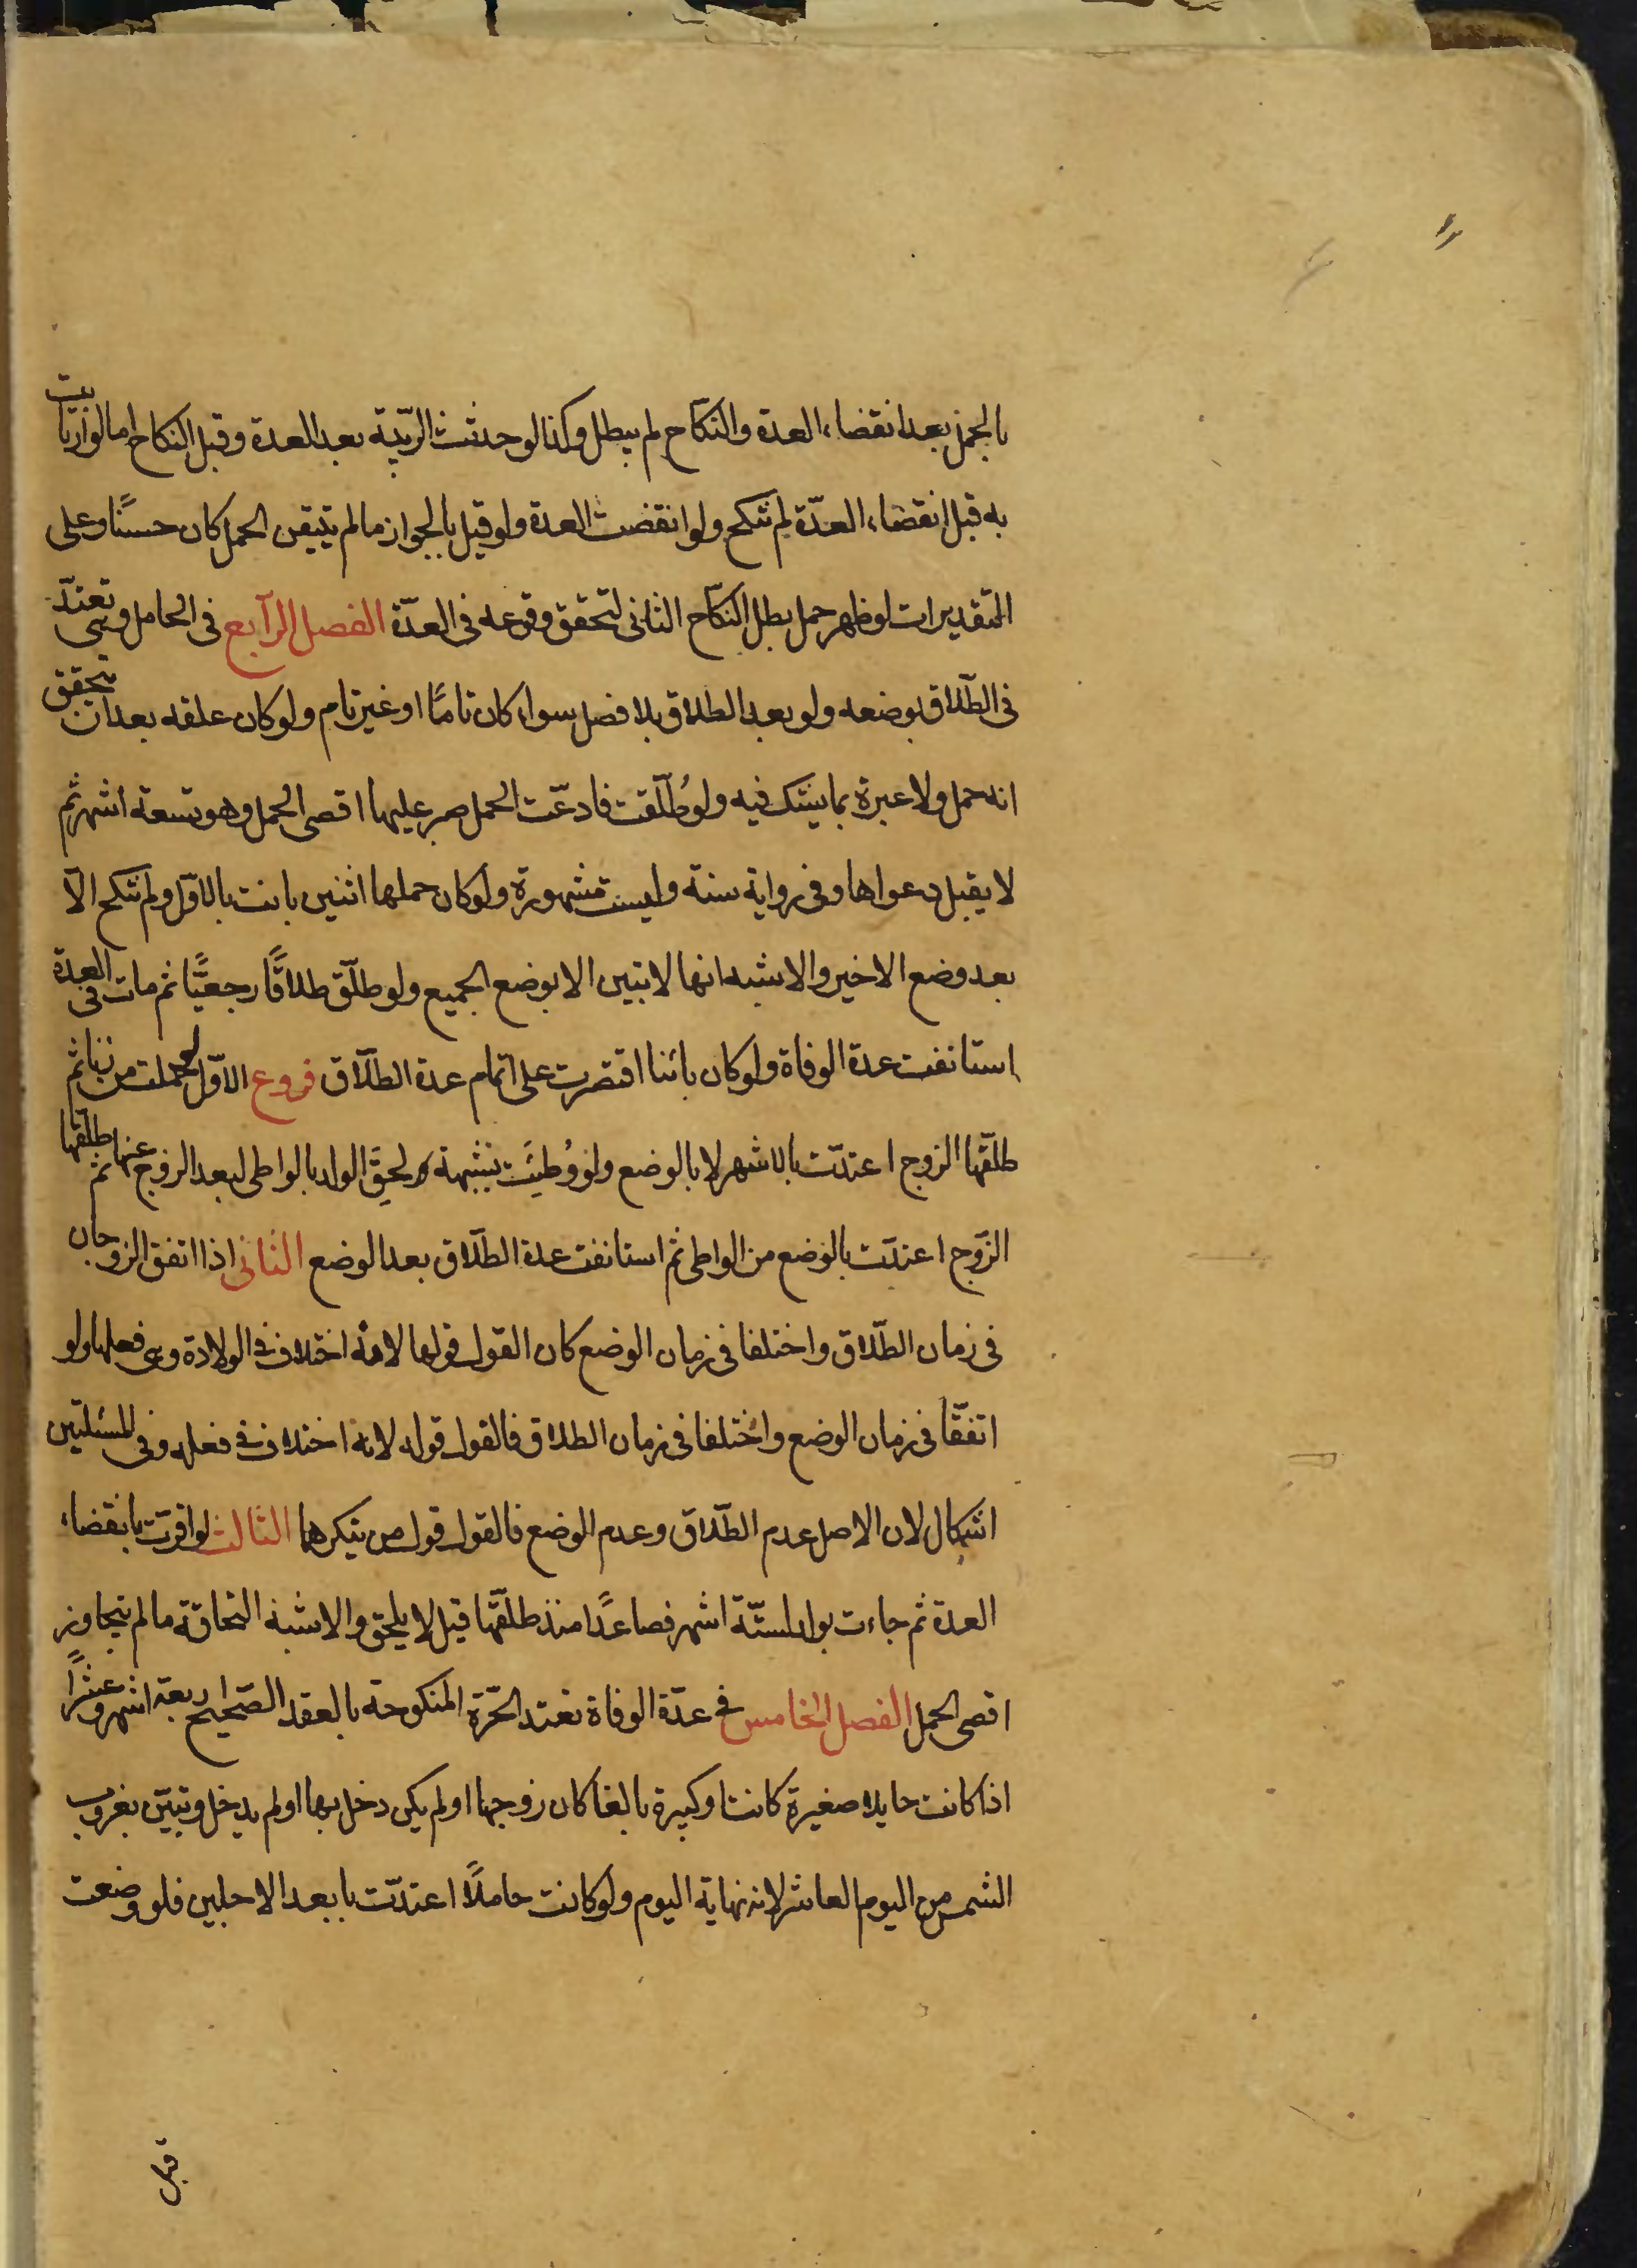 بالحمل بعد انقضاء العدة والنكاح لم يبطل وكذا لو حدثت الريبة بعد العدة وقبل النكاح اما لو ارتابت
به قبل انقضاء العدّة لم تنكح ولو انقضت العدة ولو قيل بالجواز ما لم يتيقن الحمل كان حسنًا وعلى
التقديرات لو ظهر حمل بطل النكاح الثانى لتحقق وقوعه فى العدّة الفصل الرابع فى الحامل وهى تعتدّ
فى الطلاق بوضعه ولو بعد الطلاق بلا فصل سواء كان تامًا او غير تام ولو كان علقه بعد ان يتحقق
انه حمل ولا عبرة بما يشك فيه ولو طُلّقت فادعّت الحمل صبر عليها اقصى الحمل وهو تسعة اشهر ثم
لا يقبل دعواها وفى رواية سنة وليست مشهورة ولو كان حملها اثنين بانت بالاوّل ولم تنكح الّا
بعد وضع الاخير والاشبه انها لا تبين الا بوضع الجميع ولو طلّق طلاقًا رجعيًّا ثم مات فى العدة
استانفت عدة الوفاة ولو كان بائنا اقتصرت على اتمام عدة الطلّاق فروع الاوّل لو حملت من زنا ثم
طلّقها الزوج اعتدّت بالاشهر لا بالوضع ولو وُطئَت بشبهة ولحِقَ الولد بالواطى لبعد الزوج عنها ثم طلقها
الزّوج اعتدّت بالوضع من الواطى ثم استانفت عدة الطلّاق بعد الوضع الثانى اذا اتفق الزوجان
فى زمان الطلّاق واختلفا فى زمان الوضع كان القول قولها لانه اختلاف فى الولادة وهى فعلها ولو
اتفقّا فى زمان الوضع واختلفا فى زمان الطلاق فالقول قوله لانه اختلاف فى فعله وفى المسئلتين
اشكال لان الاصل عدم الطلّاق وعدم الوضع فالقول قول من ينكرهما الثالث لو اقرت بانقضاء
العدة ثم جاءت بولد لستّة اشهر فصاعدًا منذ طلقّها قيل لا يلحق والاشبه التحاقه ما لم يتجاوز
اقصى الحمل الفصل الخامس فى عدّة الوفاة تعتد الحرّة المنكوحة بالعقد الصّحيح اربعة اشهر وعشرًا
اذا كانت حايلا صغيرة كانت او كبيرة بالغا كان زوجها او لم يكن دخل بها او لم يدخل وتبيّن بغروب
الشمس من اليوم العاشر لانه نهاية اليوم ولو كانت حاملًا اعتدّت بابعد الاجلين فلو وضعت
قبل